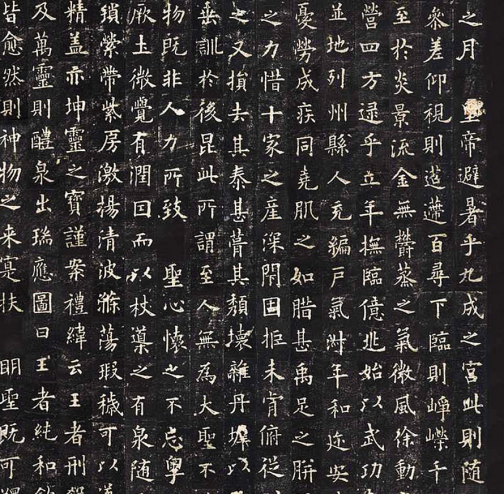 之月 皇帝避暑乎九成之宮此則隨
參差仰視則迢遰百尋下臨則崢嶸千
至於炎景流金無鬱蒸之氣微風徐動
營四方逮乎立年撫臨億兆始以武功
並地列州縣人充編戶氣淑年和迩安
憂勞成疾同堯肌之如腊甚禹足之胼
之力惜十家之產深閇固拒未肯俯從
之又損去其泰甚葺其頹壞雜丹墀以
垂訓於後昆此所謂至人無為大聖不
物既非人力所致 聖心懷之不忘粵
厥土微覺有潤因而以杖導之有泉隨
瑣縈帶紫房激揚清波滌蕩瑕穢可以
精蓋亦坤靈之寶謹案禮緯云王者刑殺
及萬靈則醴泉出瑞應圖曰王者純和飲
皆愈然則神物之來寔扶 明聖既可蠲